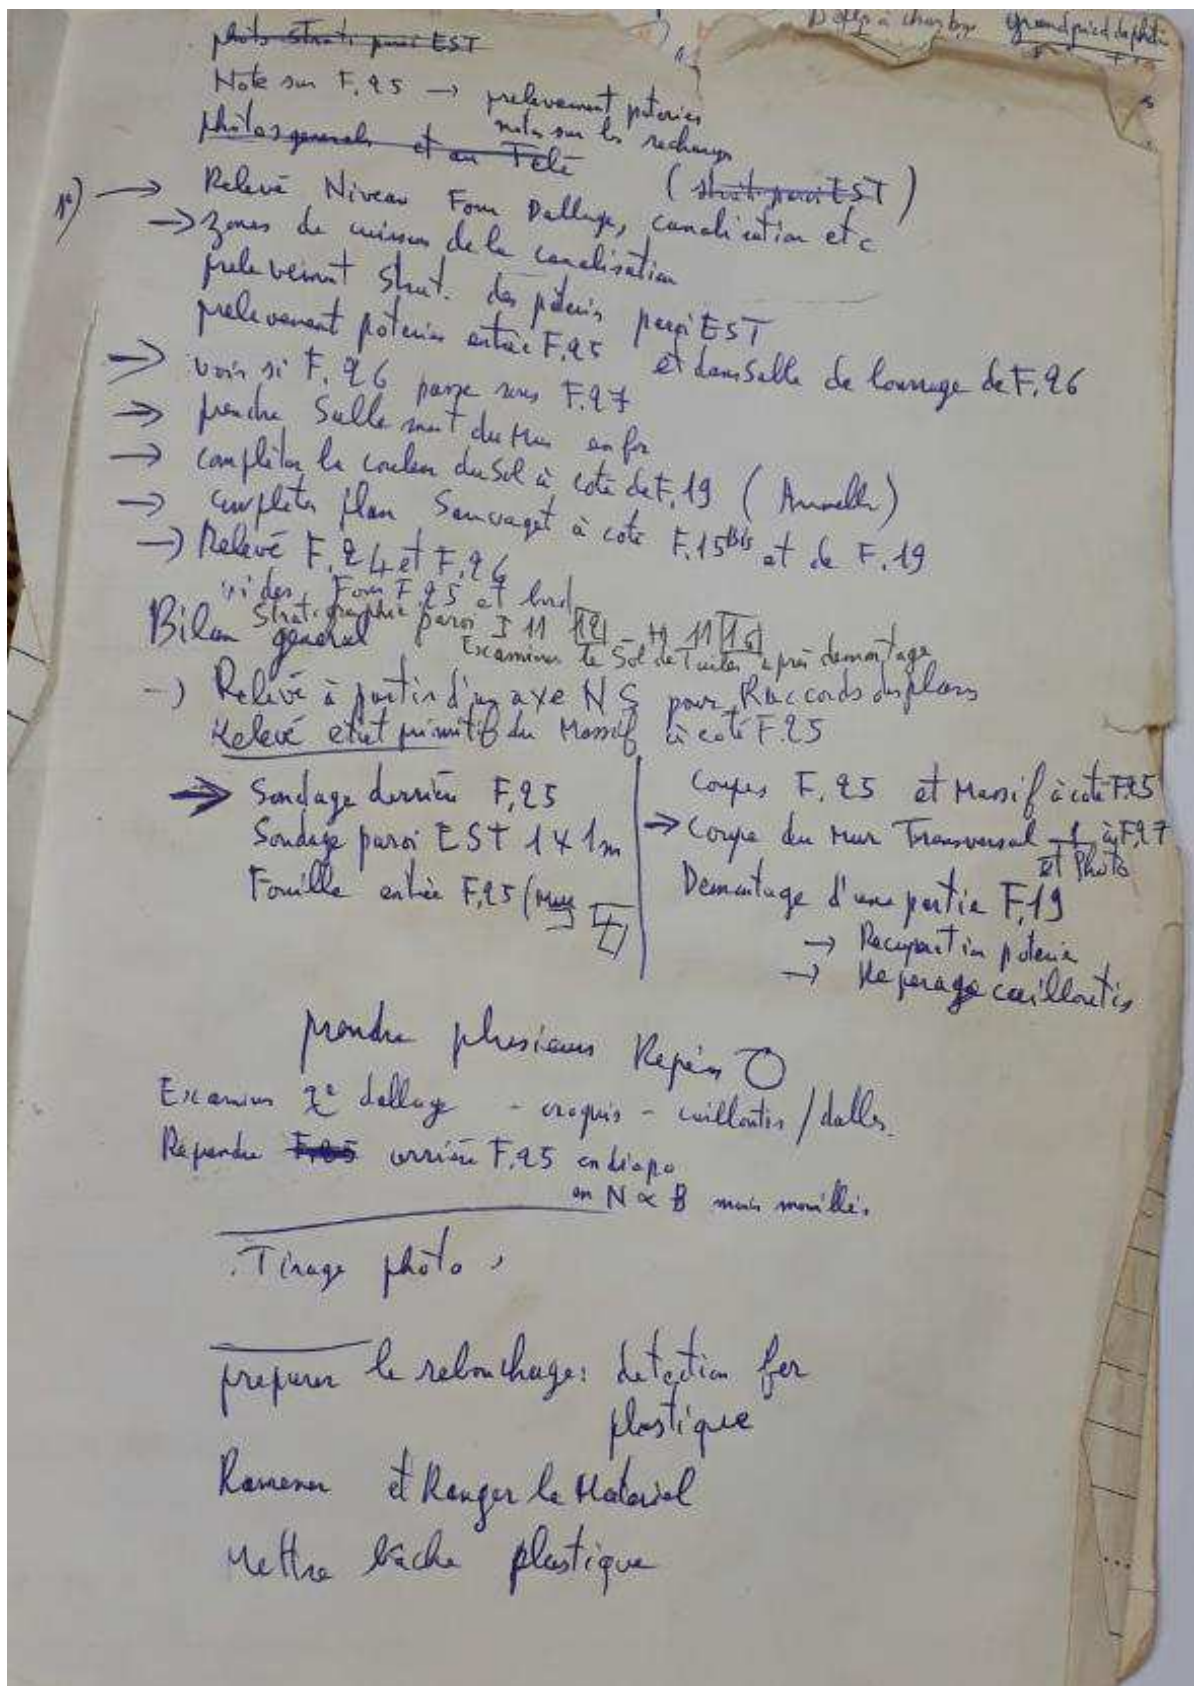 Grand pied de photo
photo strati paroi EST
Note sur F.25 → prelevement poteries
notes sur les recharges
photos generales et au Télé
(strati paroi EST)
1°) → Relevé Niveau Four Dallage, canalisation etc
→ zones de cuisson de la canalisation
prelevement strat. des poteries paroi EST
prelevement poteries entrée F.25 et dans Salle de l'ouvrage de F.26
→ voir si F.26 passe sous F.27
→ prendre Salle mat du Mur
→ complèter la couleur du Sol à coté de F.19 (Annelle)
→ completer plan Sauvaget à coté F.15Bis et de F.19
→ Relevé F.24 et F.26
Four F.25 et bord
Bilan général
Stratigraphie paroi I 11 12 - H 11 15
Examiner le Sol de Tuiles après demontage
→ Relevé à partir d'un axe NS pour Raccords des plans
Relevé etat primitif du Massif à coté F.25
→ Sondage derrière F.25
Sondage paroi EST 1 x 1m
Fouille entrée F.25 (Mur
Coupes F.25 et Massif à coté F.25
→ Coupe du Mur Transversal ⊥ à F.27
et Photo
Demontage d'une partie F.19
→ Recuperation poterie
→ Reperage cailloutis
prendre plusieurs Repères
Examiner 2e dallage - croquis - cailloutis / dalles.
Reprendre F.25 arrière F.25 en diapo
en N & B mais mouillés.
. Tirage photo
préparer le rebouchage: detection fer
plastique
Ramener et Ranger le Materiel
Mettre bâche plastique